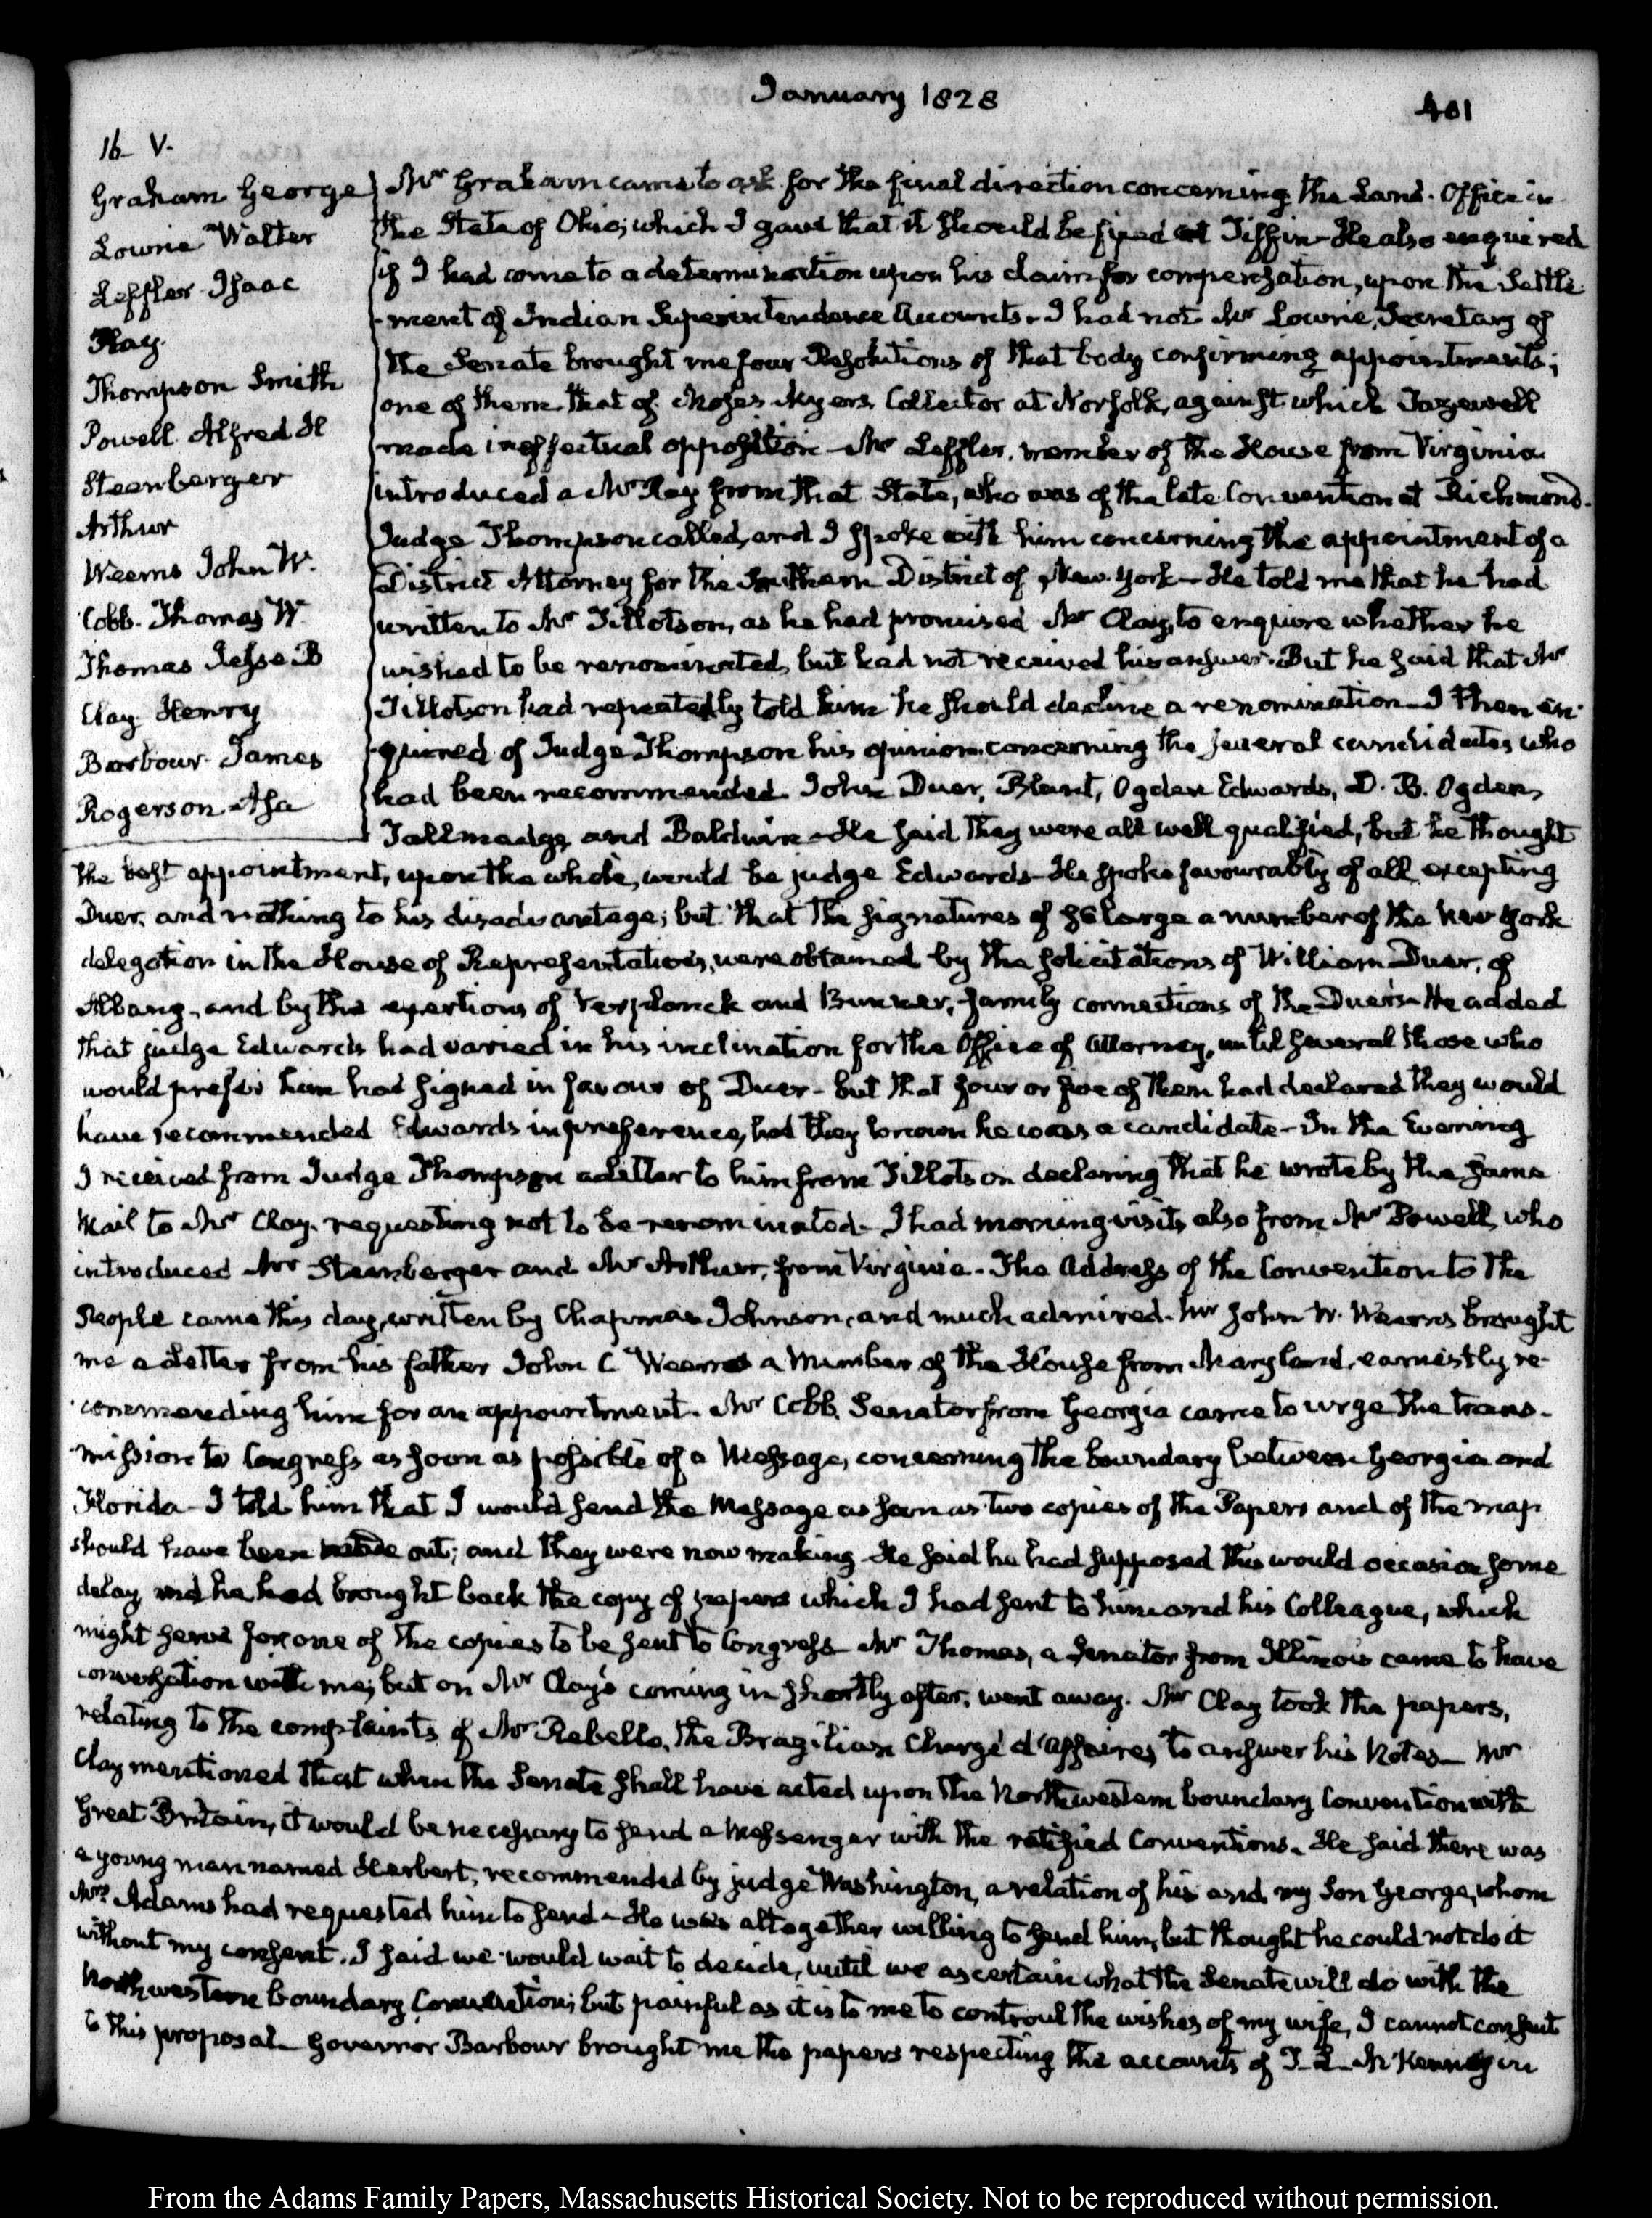 January 1828
401
16. V.
Graham George
Lowrie Walter
Leffler Isaac
Ray.
Thompson Smith
Powell Alfred H
Steenberger
Arthur
Weems John W.
Cobb. Thomas W.
Thomas Jesse B
Clay Henry
Barbour James
Rogerson Asa
Mr Graham came to ask for the final direction concerning the Land-Office in
the State of Ohio; which I gave that it should be fixed at Tiffin— He also enquired
if I had come to a determination upon his claim for compensation, upon the Settle-
-ment of Indian Superintendence Accounts. I had not. Mr Lowrie, Secretary of
the Senate brought me four Resolutions of that body confirming appointments;
one of them that of Moses Myers Collector at Norfolk, against which Tazewell
made ineffectual opposition— Mr Leffler, member of the House from Virginia
introduced a Mr Ray from that State, who was of the late Convention at Richmond.
Judge Thompson called, and I spoke with him concerning the appointment of a
District Attorney for the Southern District of New-York— He told me that he had
written to Mr Tillotson, as he had promised Mr Clay, to enquire whether he
wished to be renominated, but had not received his answer. But he said that Mr
Tillotson had repeatedly told him he should decline a renomination— I then en-
-quired of Judge Thompson his opinion concerning the several candidates who
had been recommended. John Duer, Blunt, Ogden Edwards, D. B. Ogden,
Tallmadge, and Baldwin— He said they were all well qualified, but he thought
the best appointment, upon the whole, would be judge Edwards— He spoke favourably of all excepting
Duer, and nothing to his disadvantage; but that the signatures of so large a number of the New York
delegation in the House of Representatives, were obtained by the solicitations of William Duer, of
Albany, and by the exertions of Verplanck and Bunner, family connections of the Duers— He added
that judge Edwards had varied in his inclination for the Office of Attorney, until several those who
would prefer him had signed in favour of Duer— but that four or five of them had declared they would
have recommended Edwards in preference, had they known he was a candidate— In the Evening
I received from Judge Thompson a Letter to him from Tillotson declaring that he wrote by the same
Mail to Mr Clay. requesting not to be renominated— I had morning visits also from Mr Powell, who
introduced Mr Steenberger and Mr Arthur, from Virginia— The Address of the Convention to the
People came this day, written by Chapman Johnson, and much admired. Mr John W. Weems brought
me a Letter from his father John C Weems a Member of the House from Maryland, earnestly re-
-commending him for an appointment. Mr Cobb, Senator from Georgia came to urge the trans-
-mission to Congress as soon as possible of a Message, concerning the boundary between Georgia and
Florida— I told him that I would send the Message as soon as two copies of the Papers and of the map
should have been made out; and they were now making— He said he had supposed this would occasion some
delay and he had brought back the copy of papers which I had sent to him and his Colleague, which
might serve for one of the copies to be sent to Congress— Mr Thomas, a Senator from Illinois came to have
conversation with me; but on Mr Clay's coming in shortly after, went away. Mr Clay took the papers,
relating to the complaints of Mr Rebello, the Brazilian Chargé d'affaires, to answer his Notes— Mr
Clay mentioned that when the Senate shall have acted upon the Northwestern boundary Convention with
Great-Britain, it would be necessary to send a Messenger with the ratified Conventions. He said there was
a young man named Herbert, recommended by judge Washington, a relation of his and my Son George, whom
Mrs Adams had requested him to send— He was altogether willing to send him, but thought he could not do it
without my consent. I said we would wait to decide, until we ascertain what the Senate will do with the
Northwestern boundary Convention; but painful as it is to me to controul the wishes of my wife, I cannot consent
to this proposal— Governor Barbour brought me the papers respecting the accounts of T. L. McKenney in
From the Adams Family Papers, Massachusetts Historical Society. Not to be reproduced without permission.